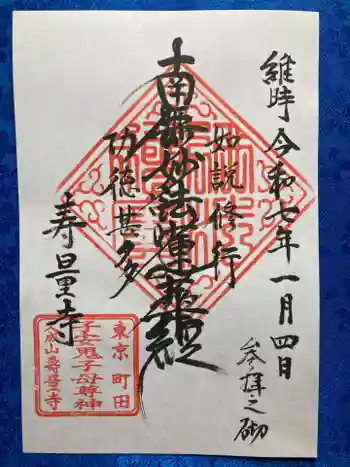 維時 令和七年一月四日
参拝之砌
如説修行
南無妙法蓮華経
功徳甚多
寿量寺
東京町田
子安鬼子母尊神
山壽量寺